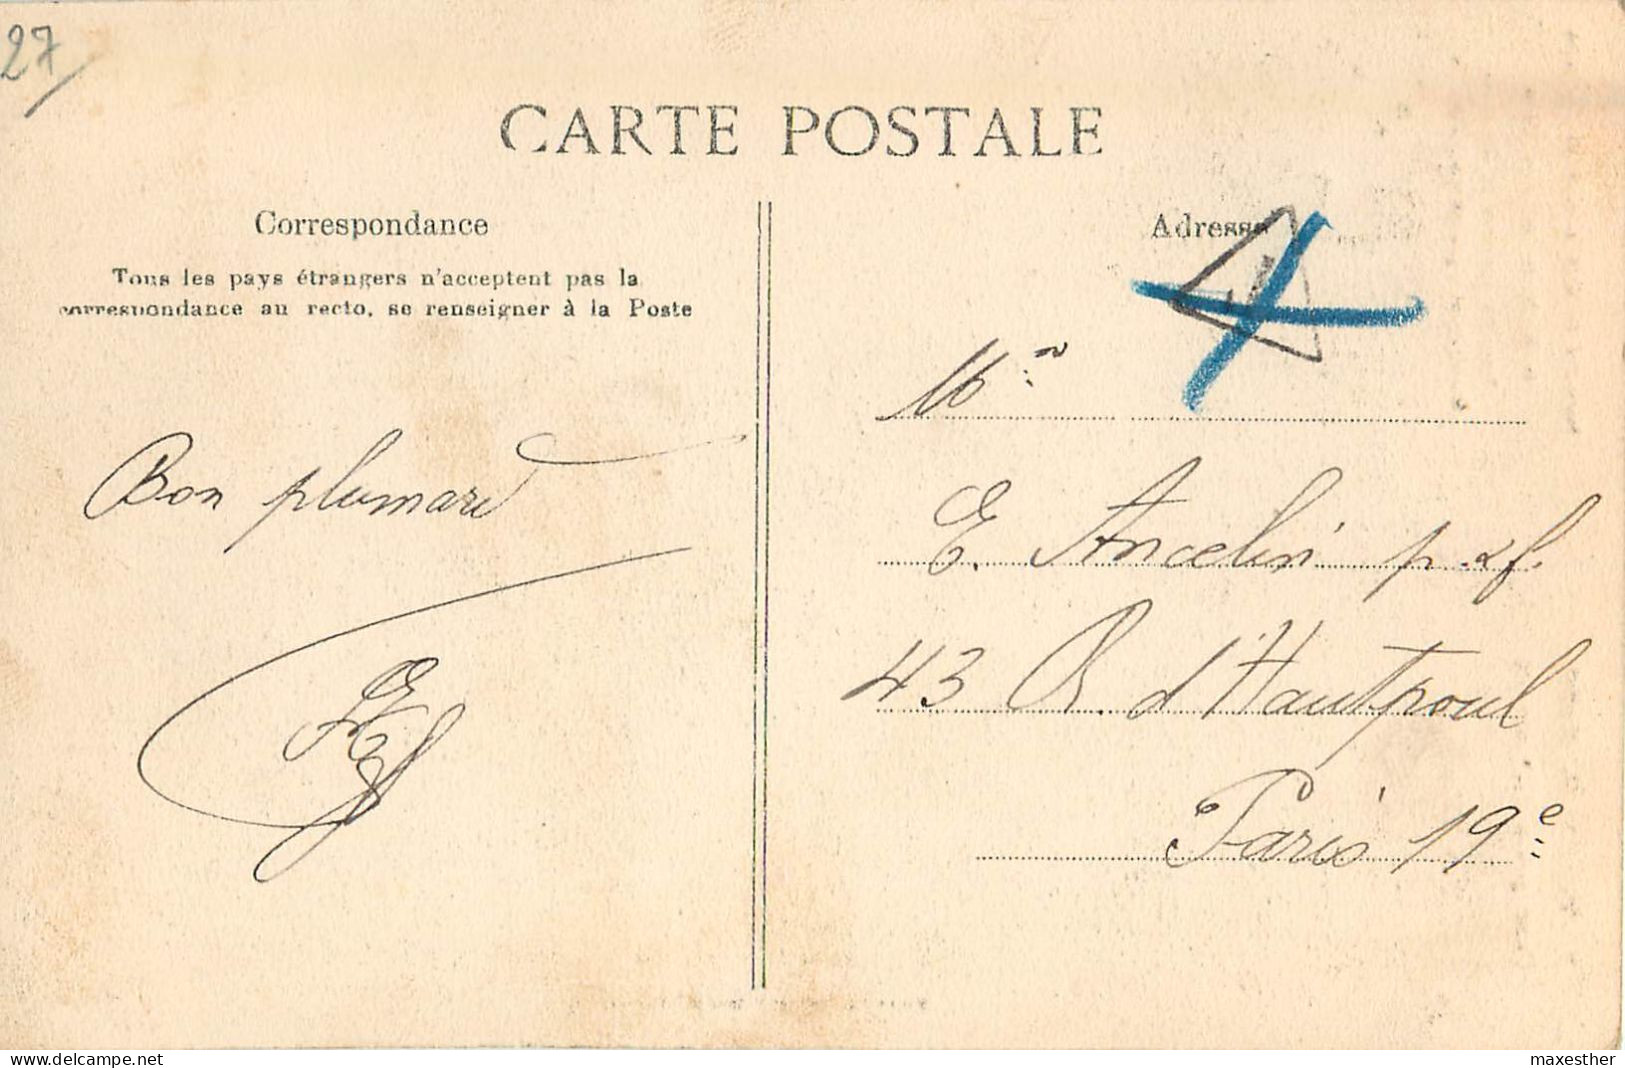 27
CARTE POSTALE
Correspondance
Tous les pays étrangers n'acceptent pas la
correspondance au recto, se renseigner à la Poste
Bon plumard
Adresse
E. Ancelin
43 R. d'Hautpoul
Paris 19e
maxesther